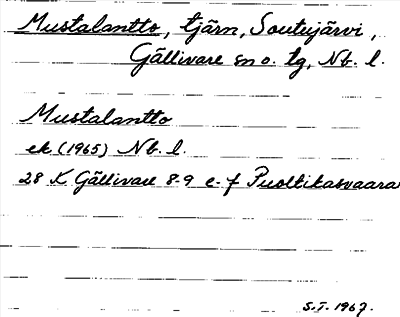 Mustalantto, tjärn, Soutujärvi,
Gällivare sn o. tg, Nb. l.
Mustalantto
ek (1965) Nb. l.
28 K Gällivare 8-9 e-f Puoltikasvaara
S.I. 1967.